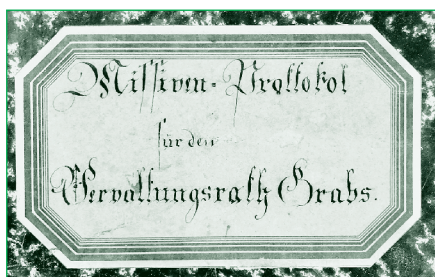 Missiven-Prottokol
für den
Verwaltungsrath Grabs.